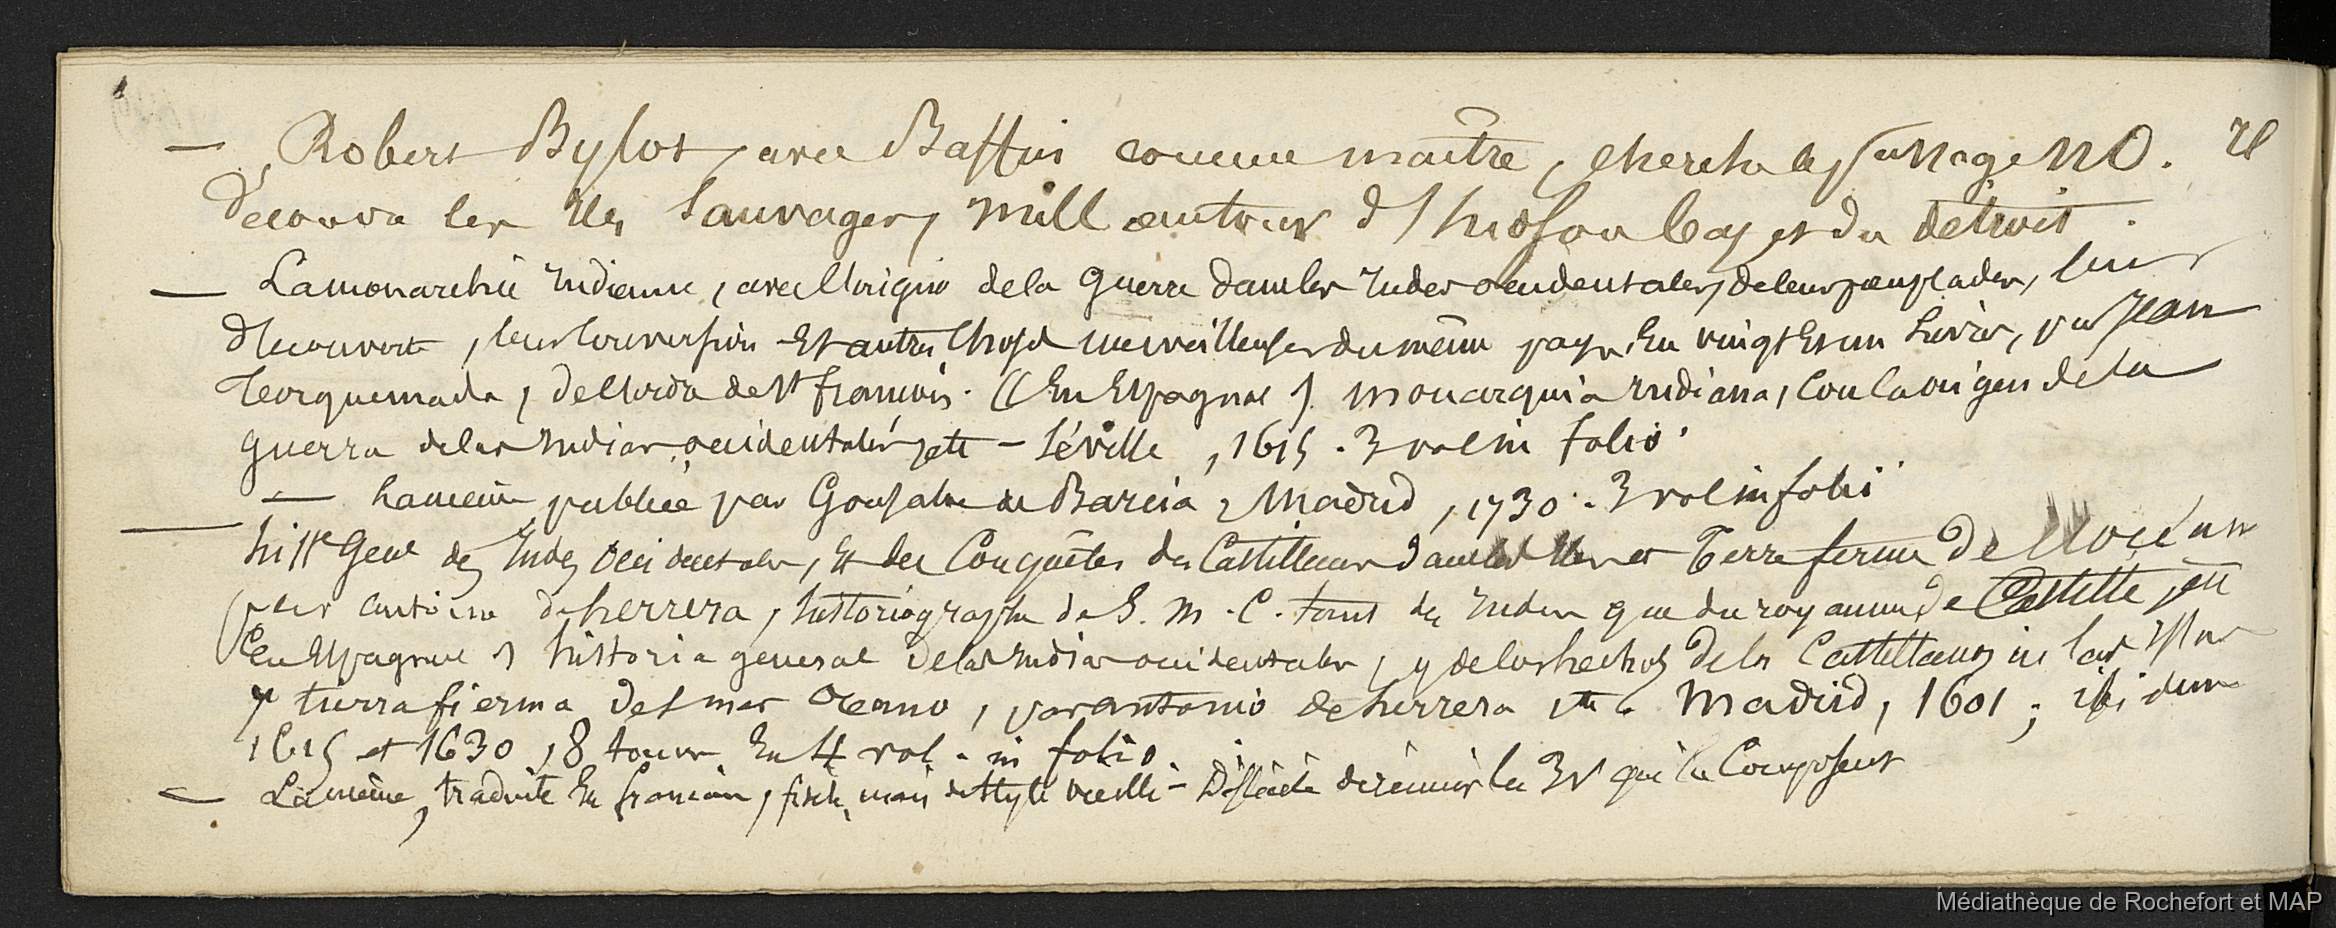 — Robert Bylot, avec Baffin comme maître, chercha le passage NO. Il
decouvre les Iles Sauvages, Mill entrées d'hudson bay et du détroit.
— La monarchie Indienne, avec l'origine de la guerre dans les Indes occidentales, de leurs peuplades, leur
découverte, leur conversion Et autres choses merveilleuses du même pays, En vingt Et un Livres, par Jean
Torquemada, de l'ordre de St francois. (En Espagnol). Monarquia Indiana, con la origen de la
guerra de las Indias occidentales, etc — Séville, 1615. 3 vol in folio.
— La même publiée par Gonsalve de Barcia, Madrid, 1730. 3 vol in folio
— hist.re Gen.le des Indes Occidentales, Et des Conquêtes des Castillans dans les Iles et Terre ferme De l'Océan
par antoine de herrera, historiographe de S. M. C. tant des Indes que du royaume de Castille, etc
(en Espagnol) historia general de las Indias occidentales, y de los hechos de los Castellanos in las Islas
y tierra fierma del mar Oceano, par antonio de herrera etc. Madrid, 1601; ibidem
1615 et 1630, 8 tomes En 4 vol. in folio.
— La même, traduite En francais, fidele, mais de style vieilli — Difficile de réunir les 3 v qui la Composent
Médiathèque de Rochefort et MAP